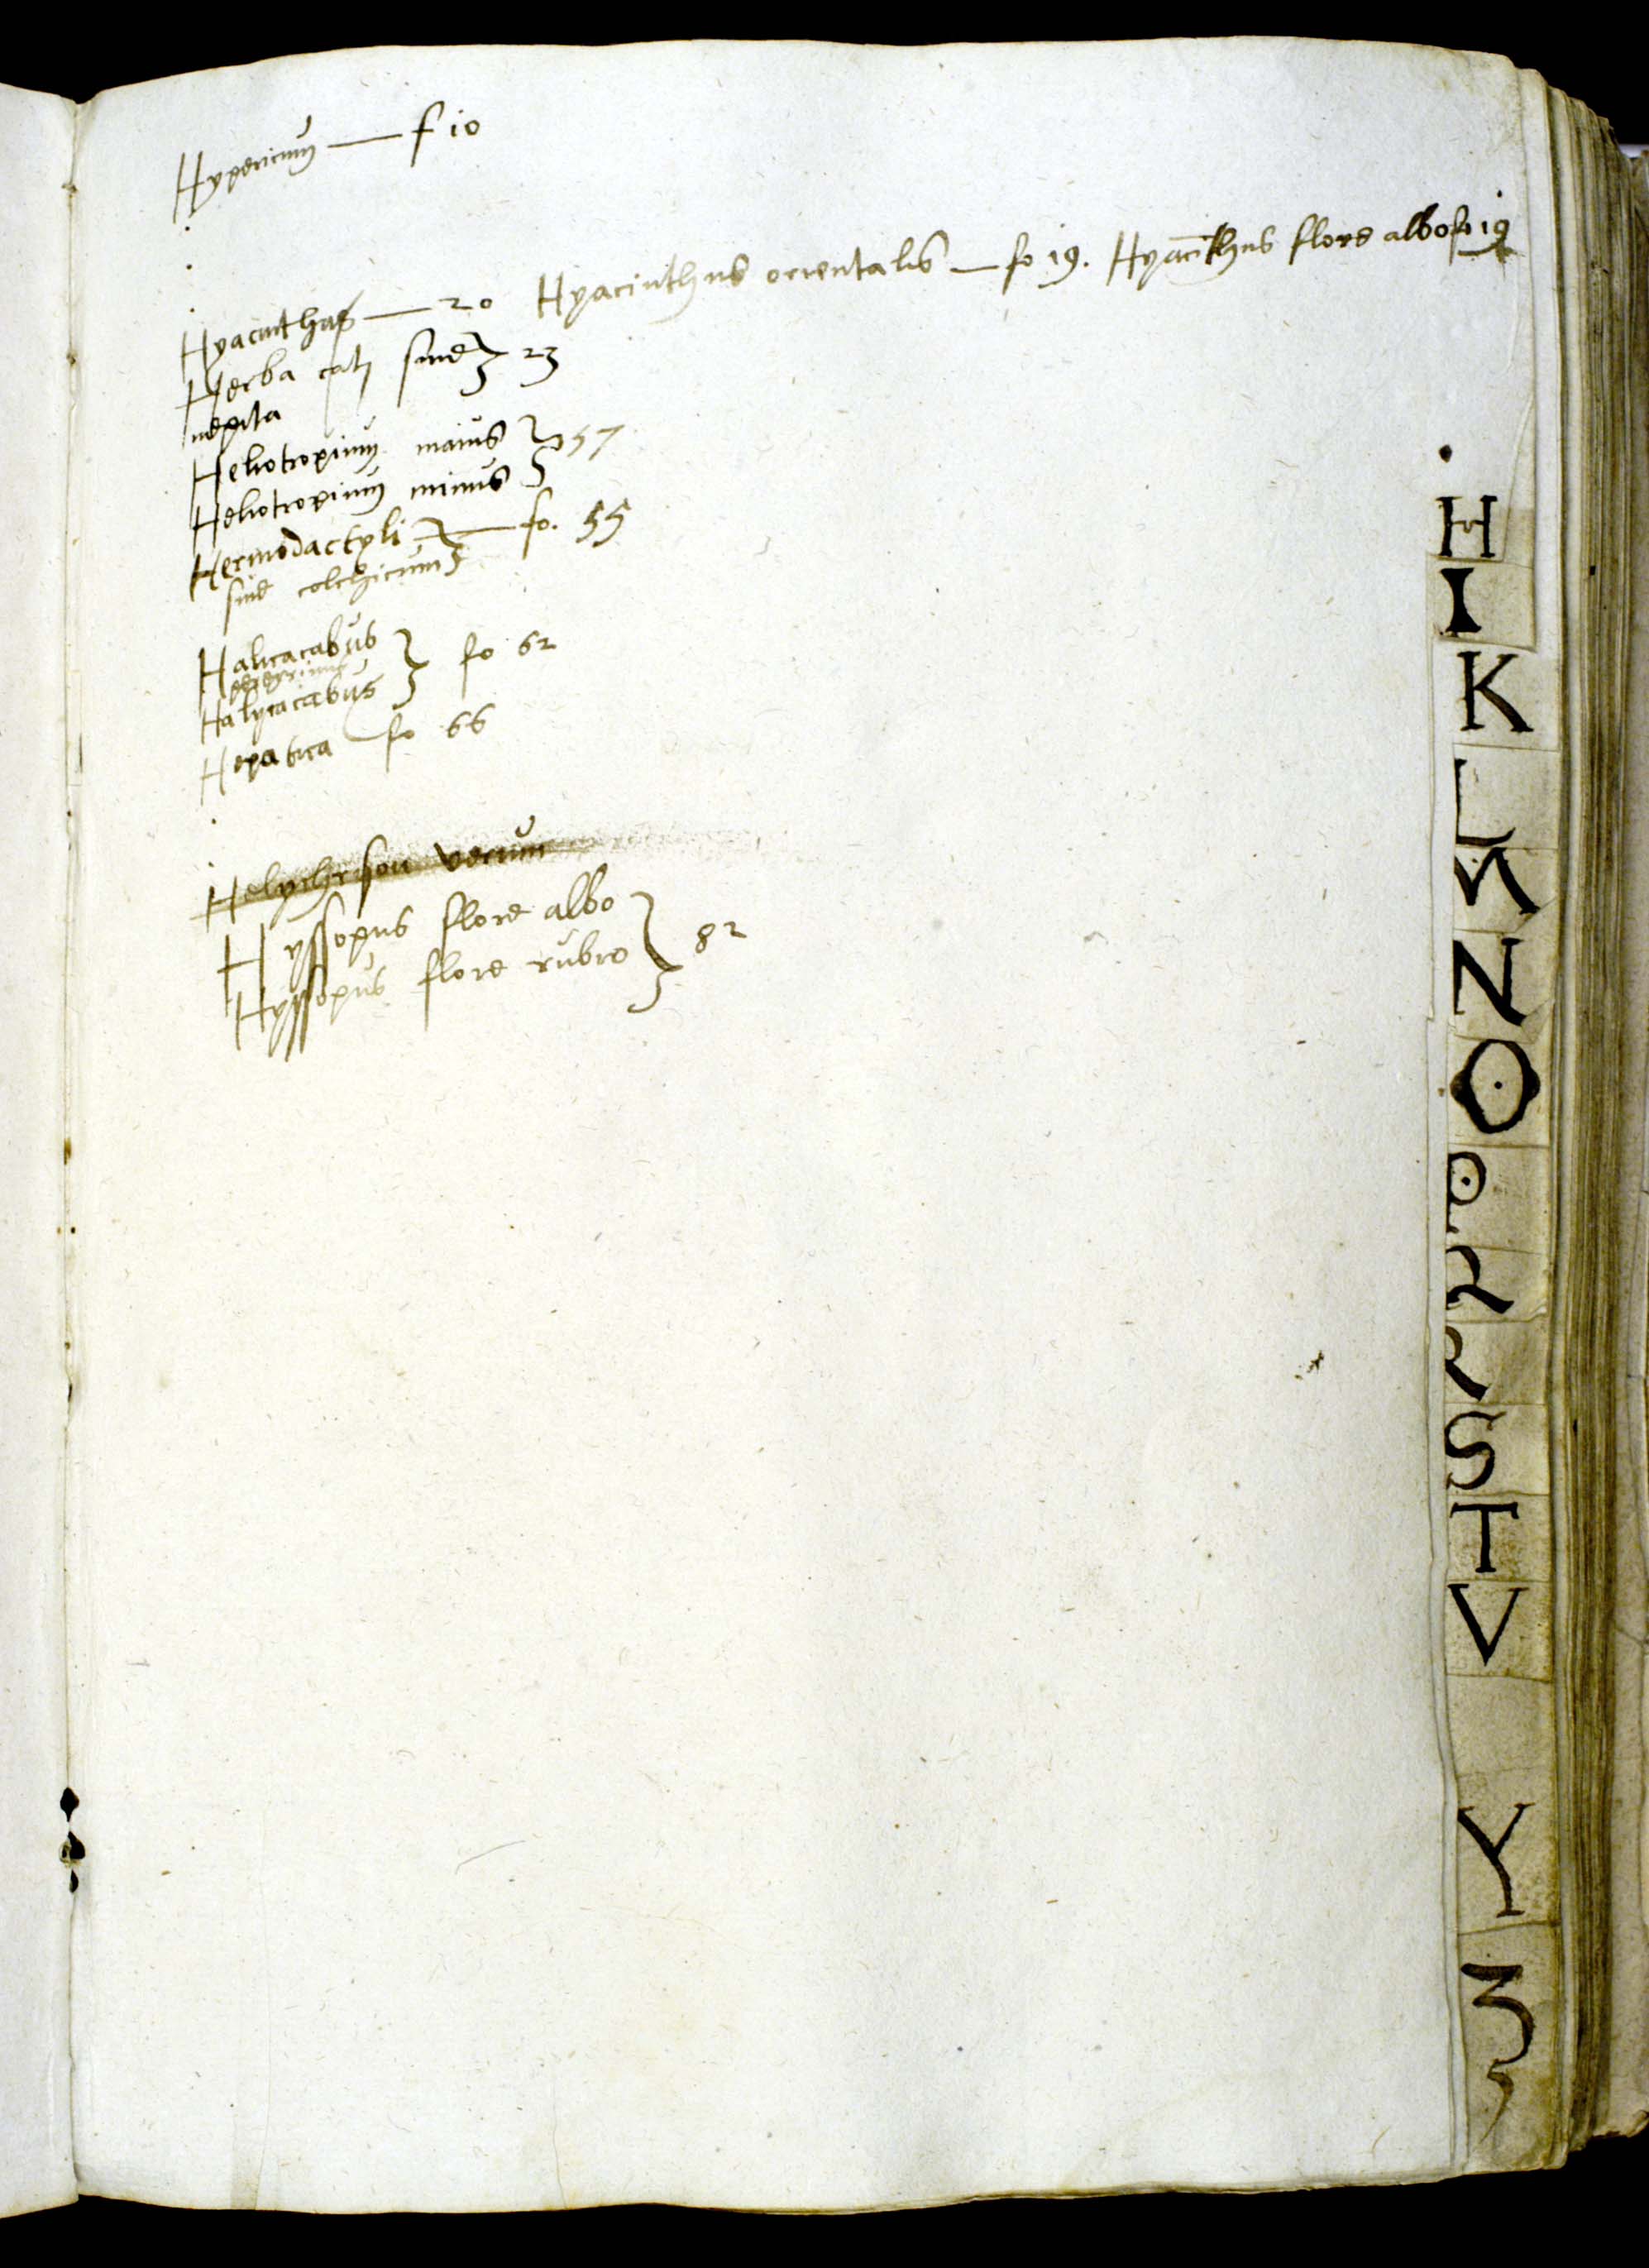 Hypericum — f 10
Hyacinthus — 20 Hyacinthus orientalis — fo 19. Hyacīthus flore albo fo 19
Herba cati siue } 23
nepita
Heliotropium maius } 57
Heliotropium minus
Hermodactyli } — fo. 55
siue colchicum
Halicacabus } fo 62
peregrinus
Halycacabus
Hepatica fo 66
Helychrison verum
Hyssopus flore albo } 82
Hyssopus flore rubro
H
I
K
L
M
N
O
P
Q
R
S
T
V
Y
Z